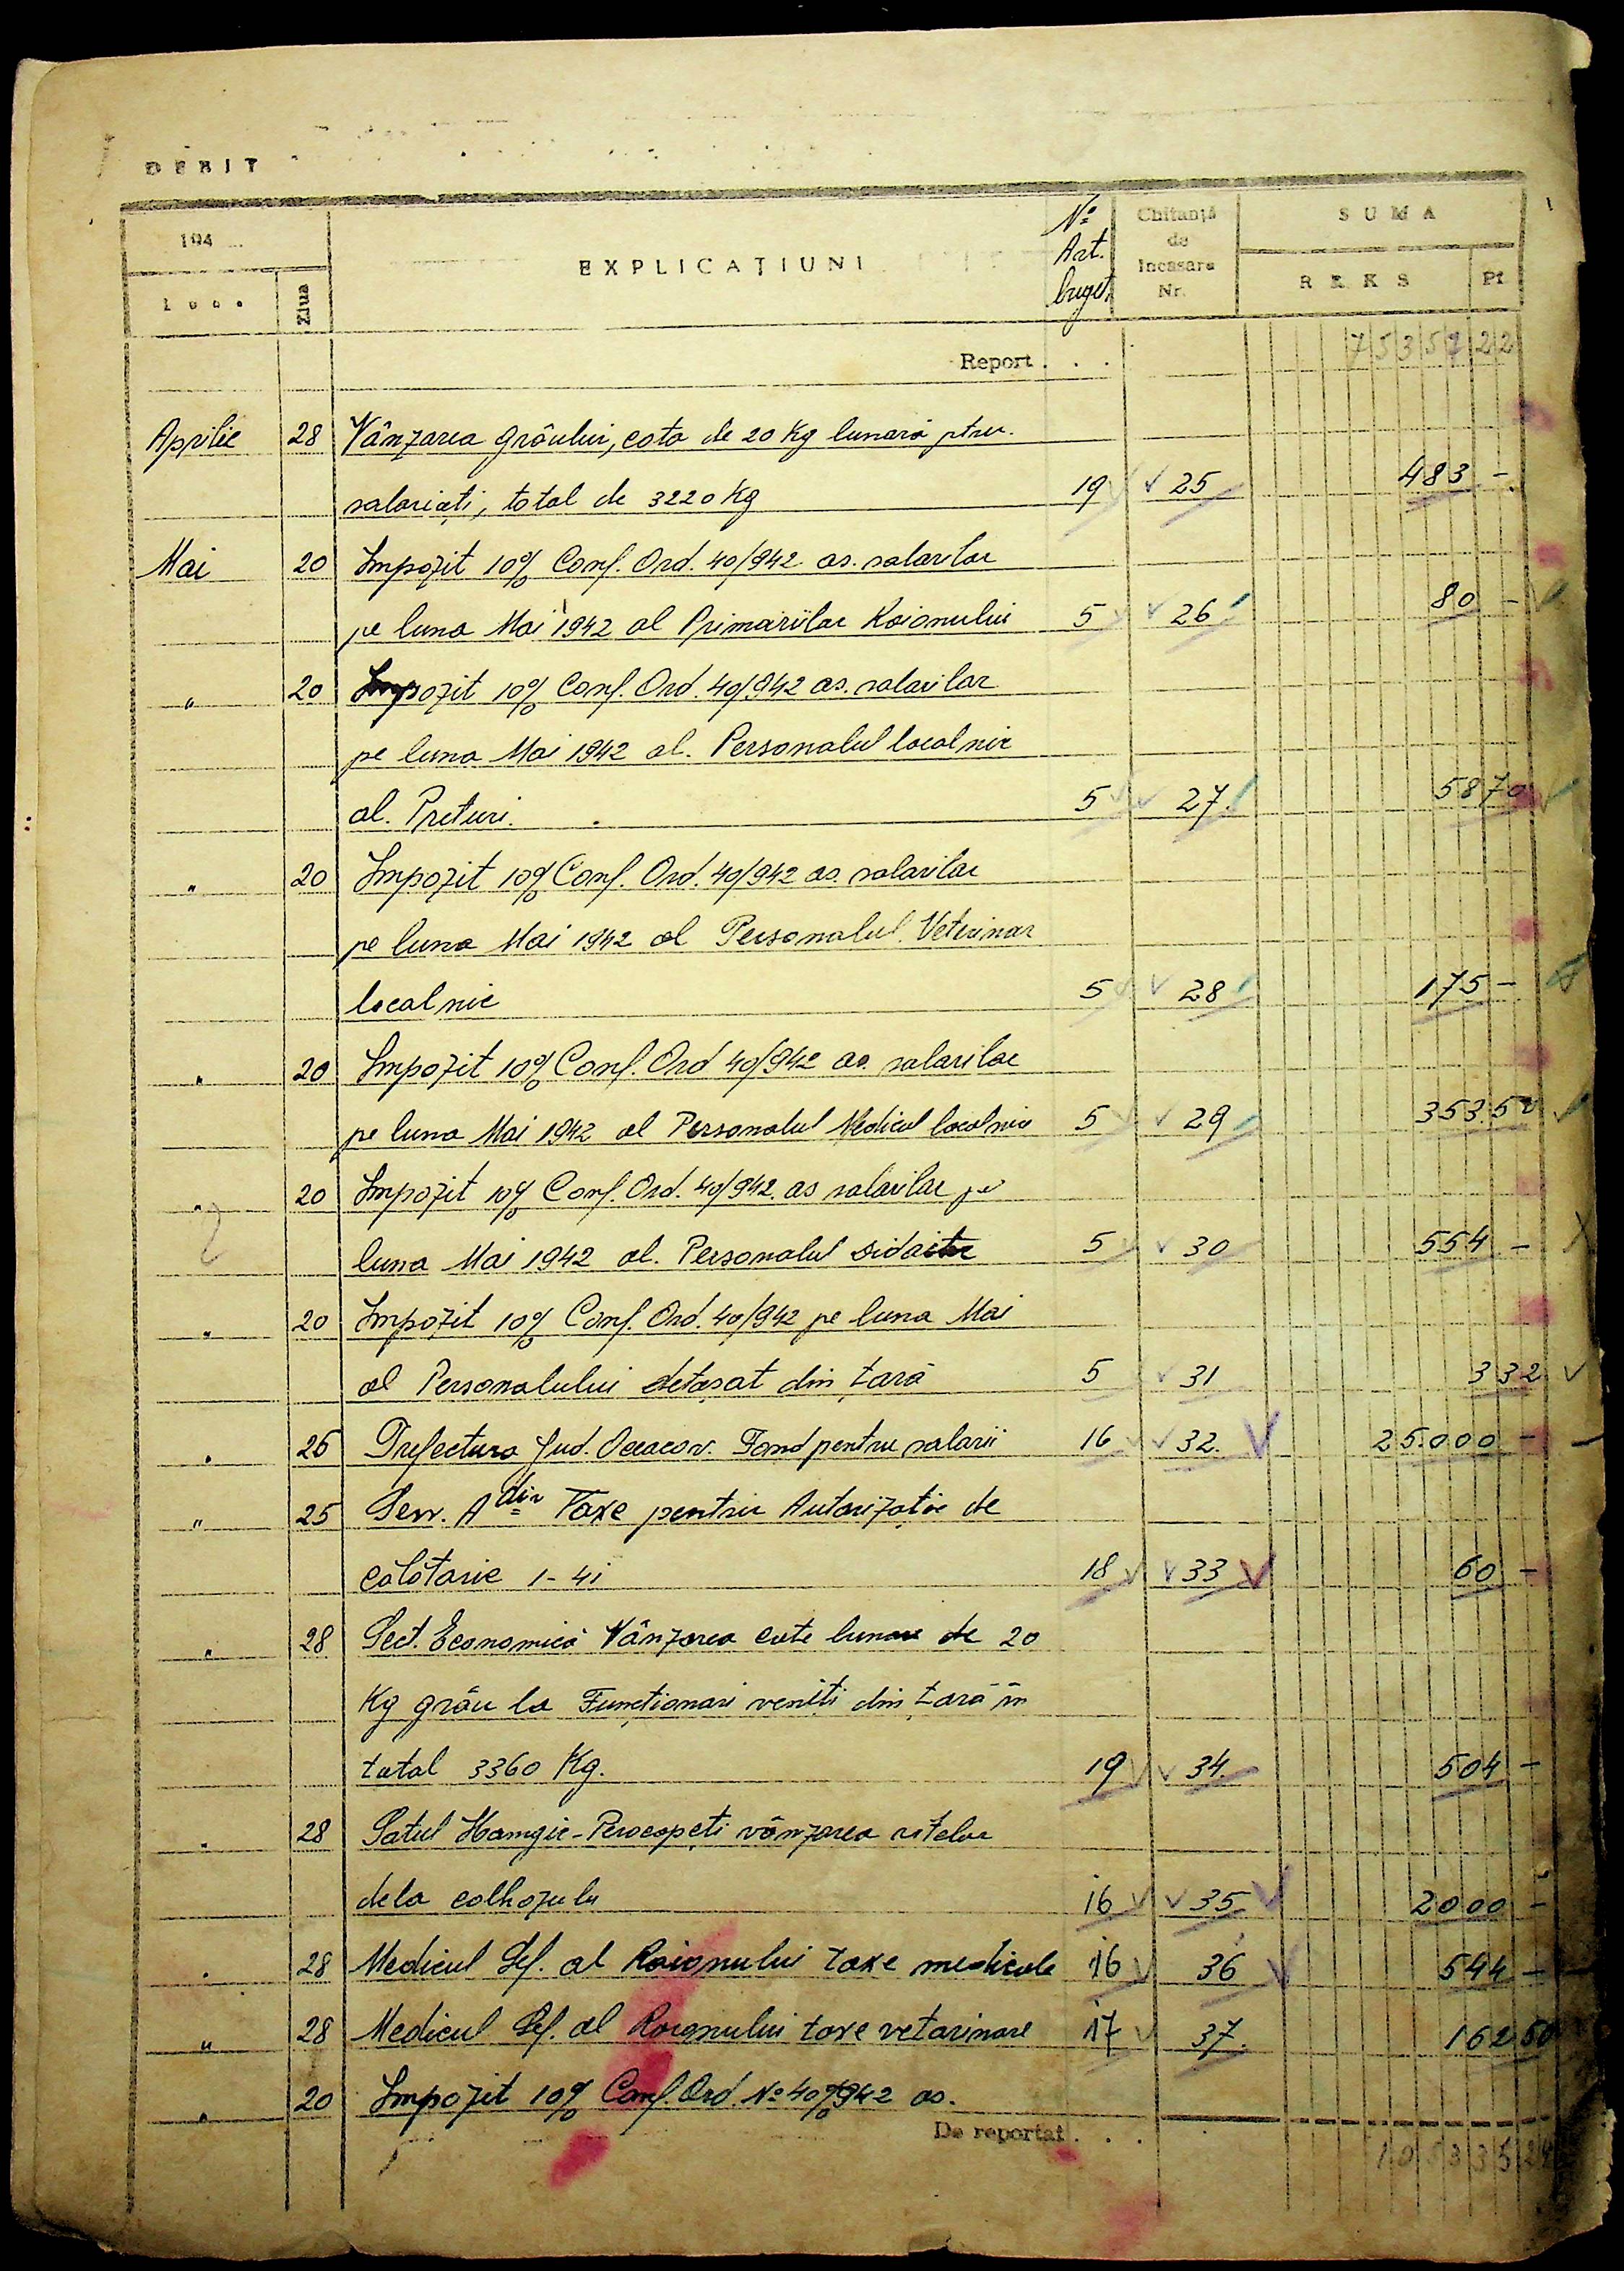 DEBIT
194... EXPLICAŢIUNI No Art. buget. Chitanţă de încasare Nr. SUMA
Luna Ziua REKS Pf
Report . . . 75357 22
Aprilie 28 Vânzarea grâului, cota de 20 Kg lunară ptru.
salariați, total de 3220 Kg 19 25 483 -
Mai 20 Impozit 10% Conf. Ord. 40/942 as. salarilor
pe luna Mai 1942 al Primariilor Raionului 5 26 80 -
" 20 Impozit 10% Conf. Ord. 40/942 as. salarilor
pe luna Mai 1942 al. Personalul localnic
al. Preturi. 5 27. 58 70
" 20 Impozit 10% Conf. Ord. 40/942 as. salarilor
pe luna Mai 1942 al Personalul Veterinar
localnic 5 28 175 -
" 20 Impozit 10% Conf. Ord 40/942 as. salarilor
pe luna Mai 1942 al Personalul Medical localnic 5 29 353.52
" 20 Impozit 10% Conf. Ord. 40/942. as salarilor pe
luna Mai 1942 al. Personalul Didactic 5 30 554 -
" 20 Impozit 10% Conf. Ord. 40/942 pe luna Mai
al Personalului detașat din țară 5 31 3 32
" 26 Prefectura Jud. Oceacov. Fond pentru salarii 16 32. 25.000 -
" 25 Serv. Adiv Taxe pentru Autorizație de
calătorie 1-4i 18 33 60 -
" 28 Sect. Economică Vânzarea cote lunare de 20
Kg grâu la Funcționari veniti din țară în
total 3360 Kg. 19 34. 504 -
" 28 Satul vânzarea
dela colhozulu 16 35 2000 -
" 28 Medicul Șef. al Raionului taxe medicale 16 36 544 -
" 28 Medicul Șef. al Raionului taxe vetarinare 17 37. 162 50
" 20 Impozit 10% Conf. Ord. No 40/942 as.
De reportat . . .